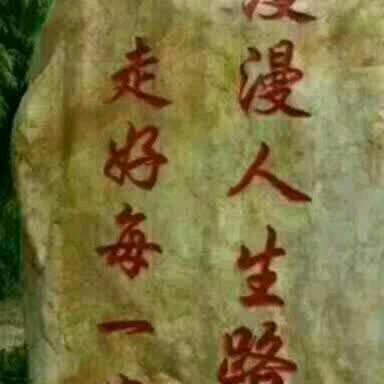 漫漫人生路
走好每一